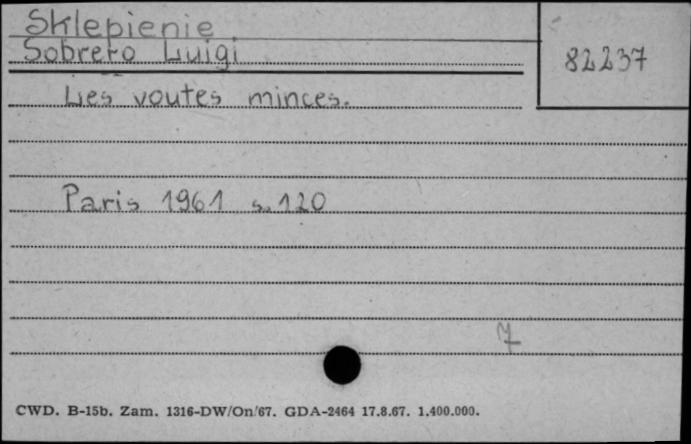 Sklepienie
Sobrero Luigi
82237
Les voutes minces.
Paris 1961 s. 120
7
CWD. B-15b. Zam. 1316-DW/On/67. GDA-2464 17.8.67. 1.400.000.